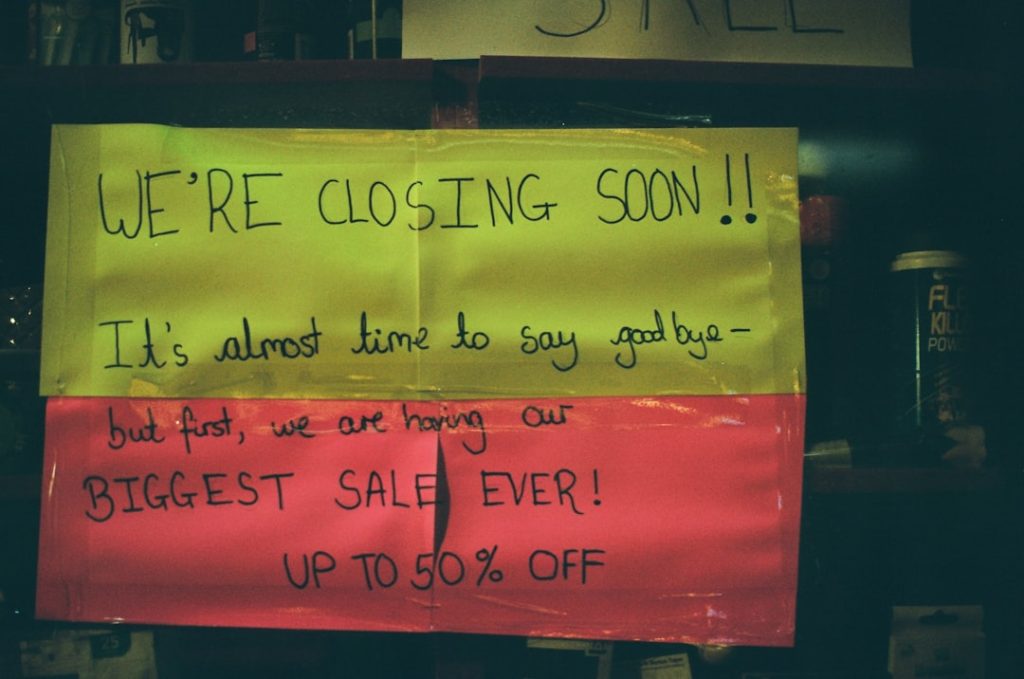 SALE
WE'RE CLOSING SOON!!
It's almost time to say goodbye-
but first, we are having our
BIGGEST SALE EVER!
UP TO 50% OFF
25